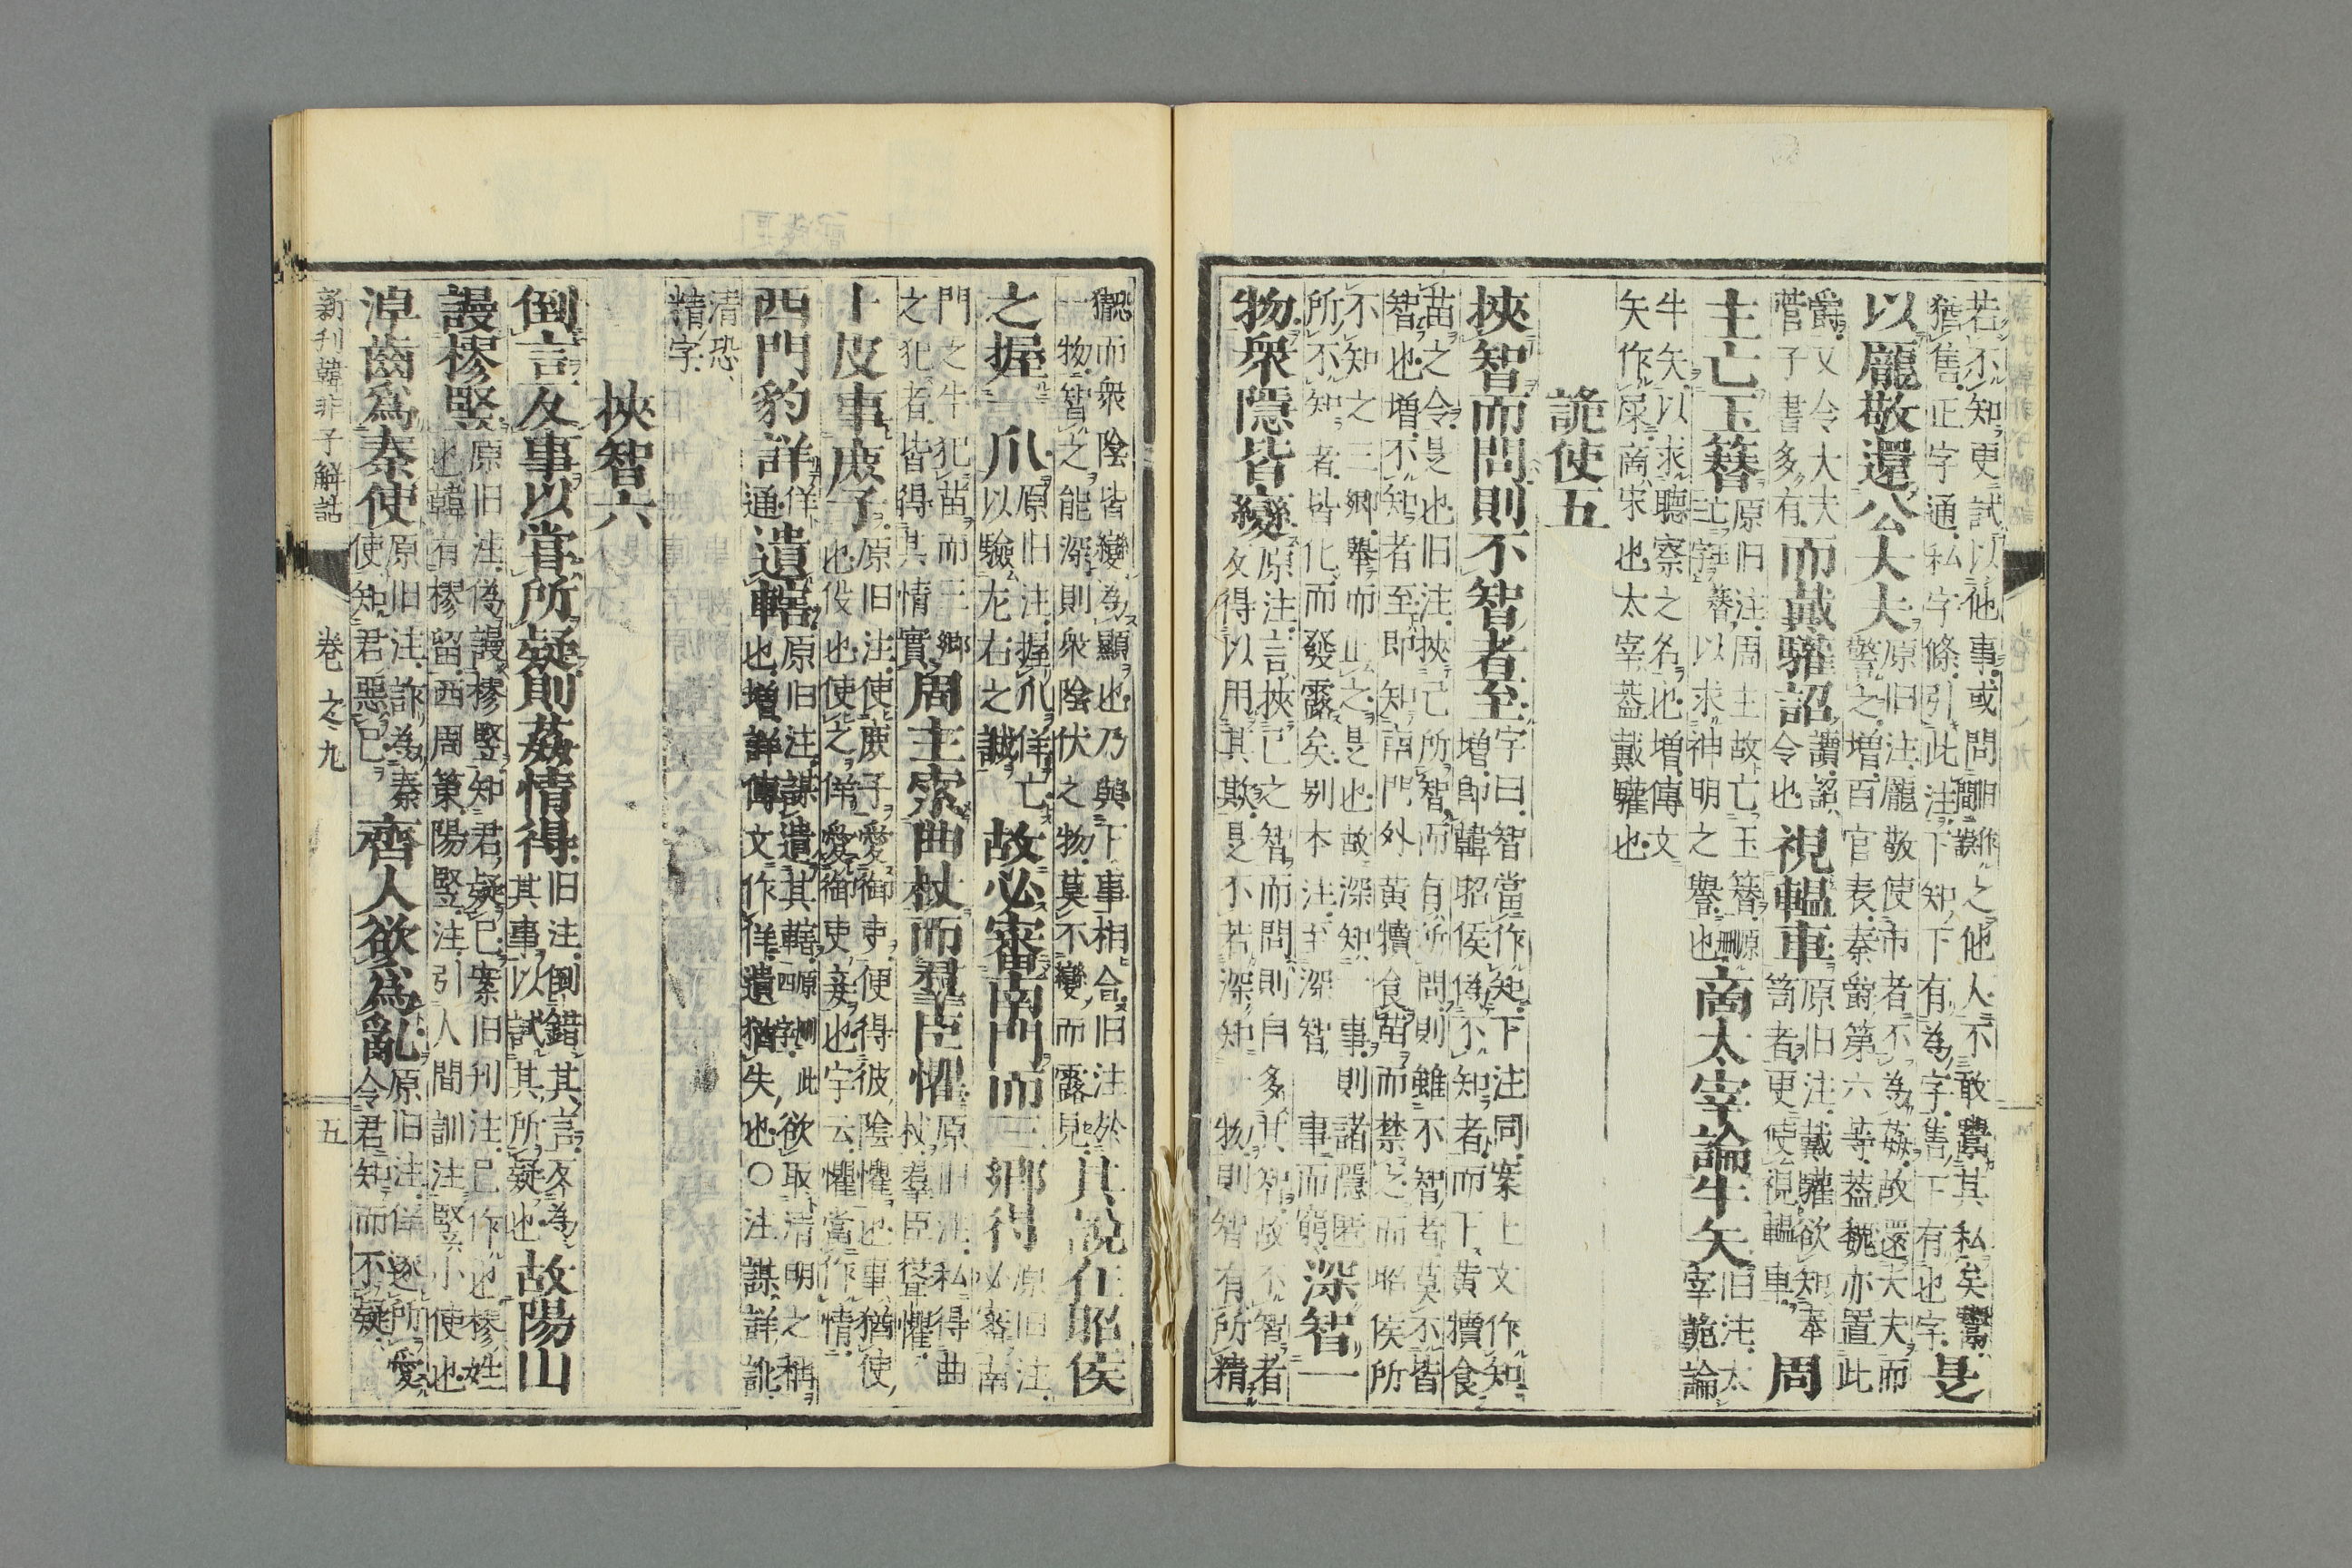 若不知更試以他事或問間旧作誤之他人不敢鬻其私矣鬻
猶售正字通私字條引此注下知下有為字售下有也字是
以龐敬還公大夫原旧注龐敬使市者不為姦故還大夫而
警之增百官表秦爵第六等蓋魏亦置此
爵又令大夫
菅子書多有而戴驩詔讀詔令也視轀車原旧注戴驩欲知奉
笥者更使視轀車周
主亡玉簪原旧注周主故亡玉簪原刪
亡字簪以求神明之譽也商太宰論牛矢旧注太
宰詭論
牛矢以求聽察之名也增傳文
矢作屎商宋也太宰蓋戴驩也
詭使五
挾智而問則不智者至增字曰智當作知下注同案上文作知
韓昭侯佯不知者而下黃犢食
苗之令是也旧注挾己所智而有所問則雖不智者莫不皆
智也增不知者至即知南門外黃犢食苗而禁之而昭侯所
不知之三鄉舉而止之是也故深知一事則諸隱匿
所不知者皆化而發露矣别本注至深智事而窮深智一
物眾隱皆變原注言挾己之智而問則自多其智故不智者
及得以用其欺是不若深知物則智有所精
恐而眾陰皆變為顯也乃與下事相合旧注於
猶一物智之能深則眾陰伏之物莫不變而露見其說在昭侯
之握一爪原旧注握爪佯亡
以驗左右之誠故必審南門而三鄉得原旧注
必審南
門之牛犯苗而三鄉
之犯者皆得其情實周主索曲杖而羣臣懼原旧注私得曲
杖羣臣聳懼
卜皮事庶子原旧注使庶子愛御史便得彼陰懼也事猶使
也伇也使之佯愛御史妾也宇云懼當作情
西門豹詳佯
通遺轄原旧注謀遺其轄原刪此
四字欲取清明之稱
也增詳傳文作佯遺猶失也〇注謀詳訛
清恐
精字
挾智六
倒言反事以嘗所疑則姦情得旧注倒錯其言反為
其事以試其所疑也故陽山
謾樛豎原旧注偽謾樛豎知君疑己案旧刊注己作也樛姓
也韓有樛留西周策陽豎注引人間訓注豎小使也
淖齒為秦使原旧注詐為秦
使知君惡己齊人欲為亂原旧注佯逐所愛
令君知而不疑
新刋韓非子解詁 卷之九 五